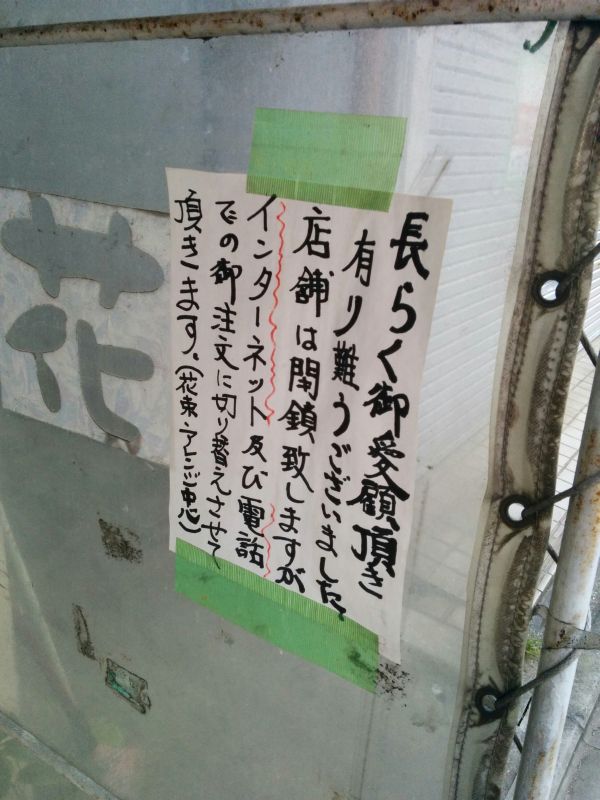 長らく御愛顧頂き
有り難うございました。
店舗は閉鎖致しますが
インターネット及び電話
での御注文に切り替えさせて
頂きます。(花束・アレンジ中心)
花